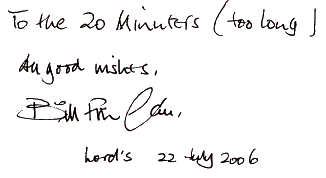 To the 20 Minuters (too long)
All good wishes,
Bill
Lord's 22 July 2006